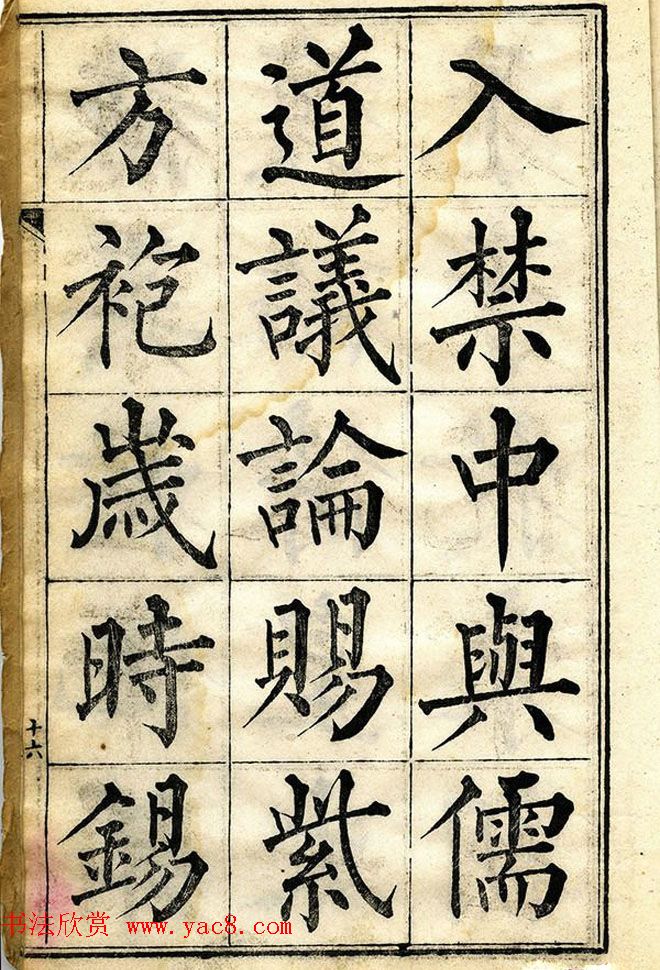 入禁中與儒
道議論賜紫
方袍歲時錫
十六
书法欣赏 www.yac8.com